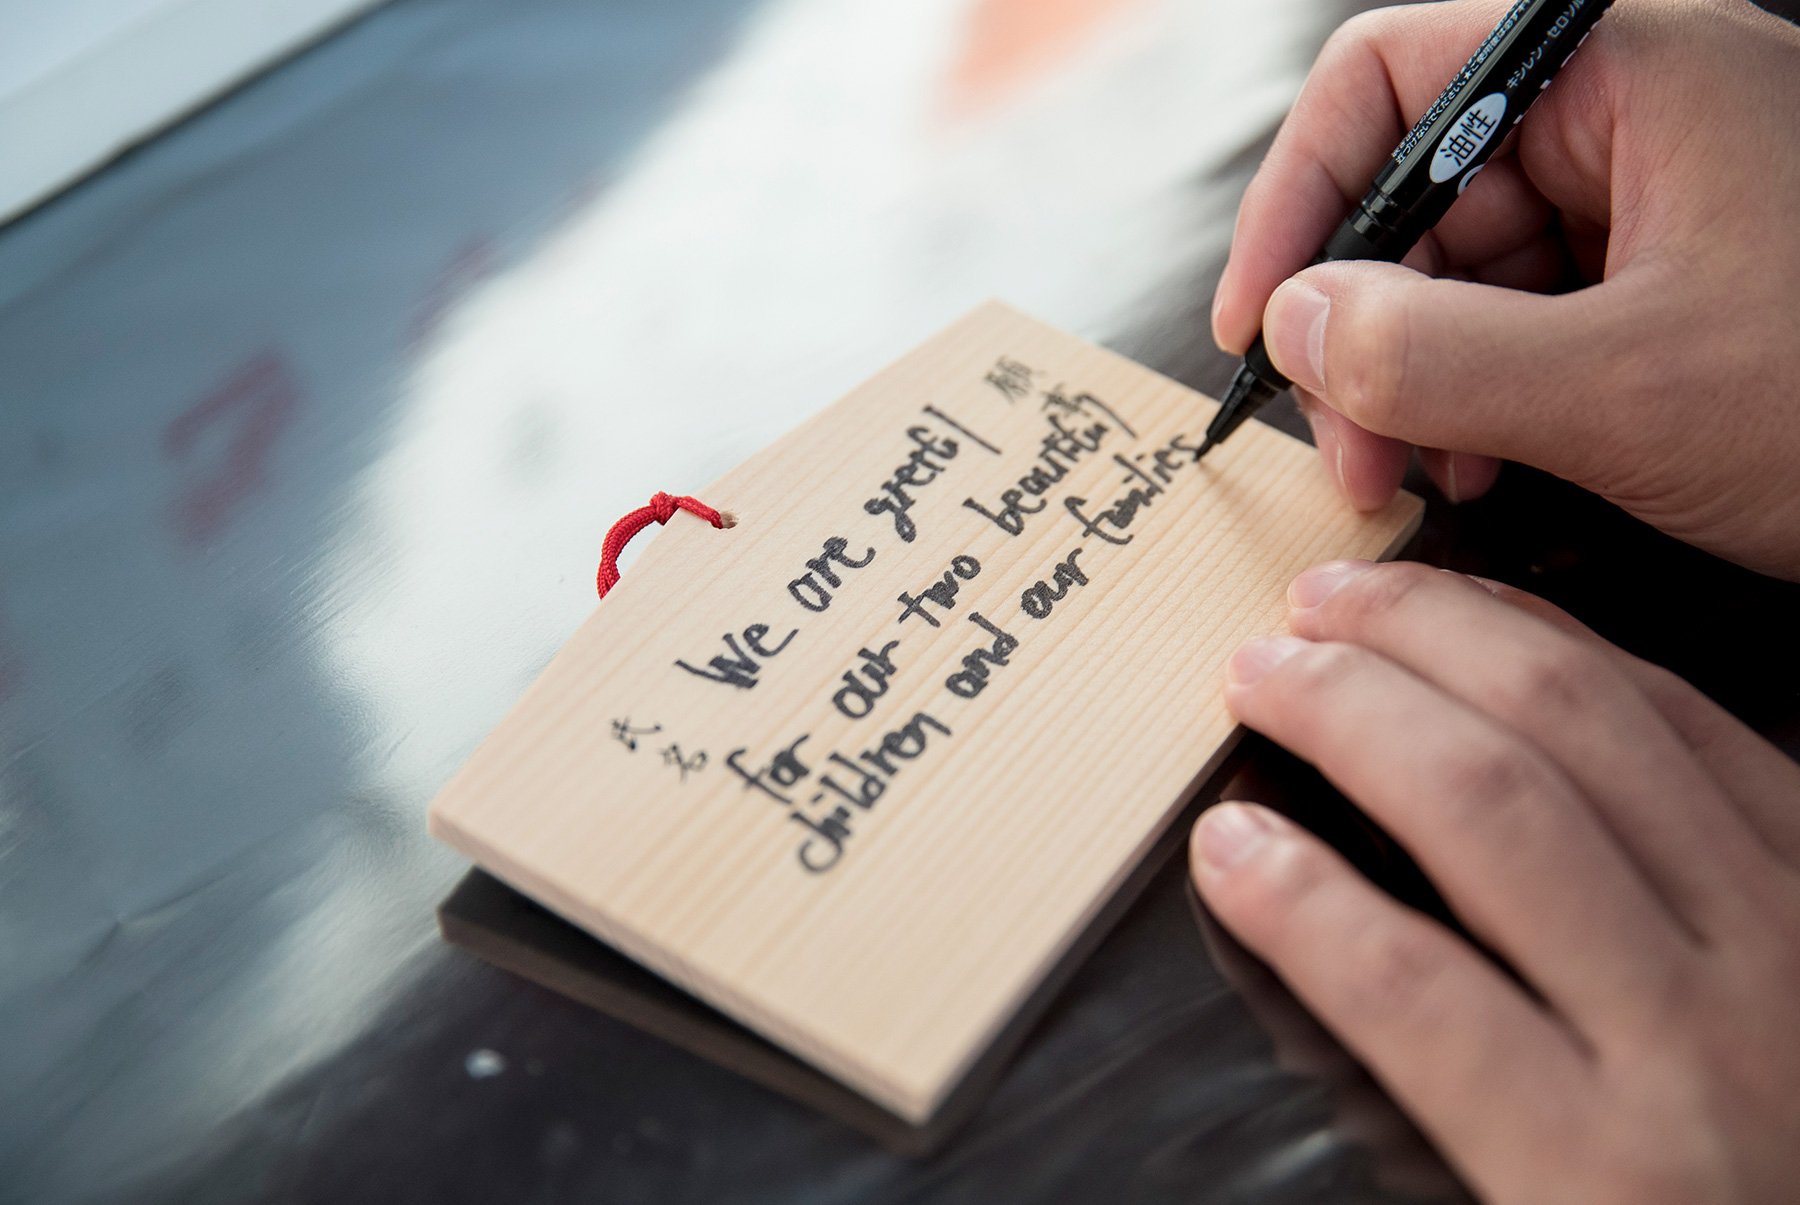 願事
We are great
for our two beautiful
children and our families
氏名
油性
キシレン・セロソル